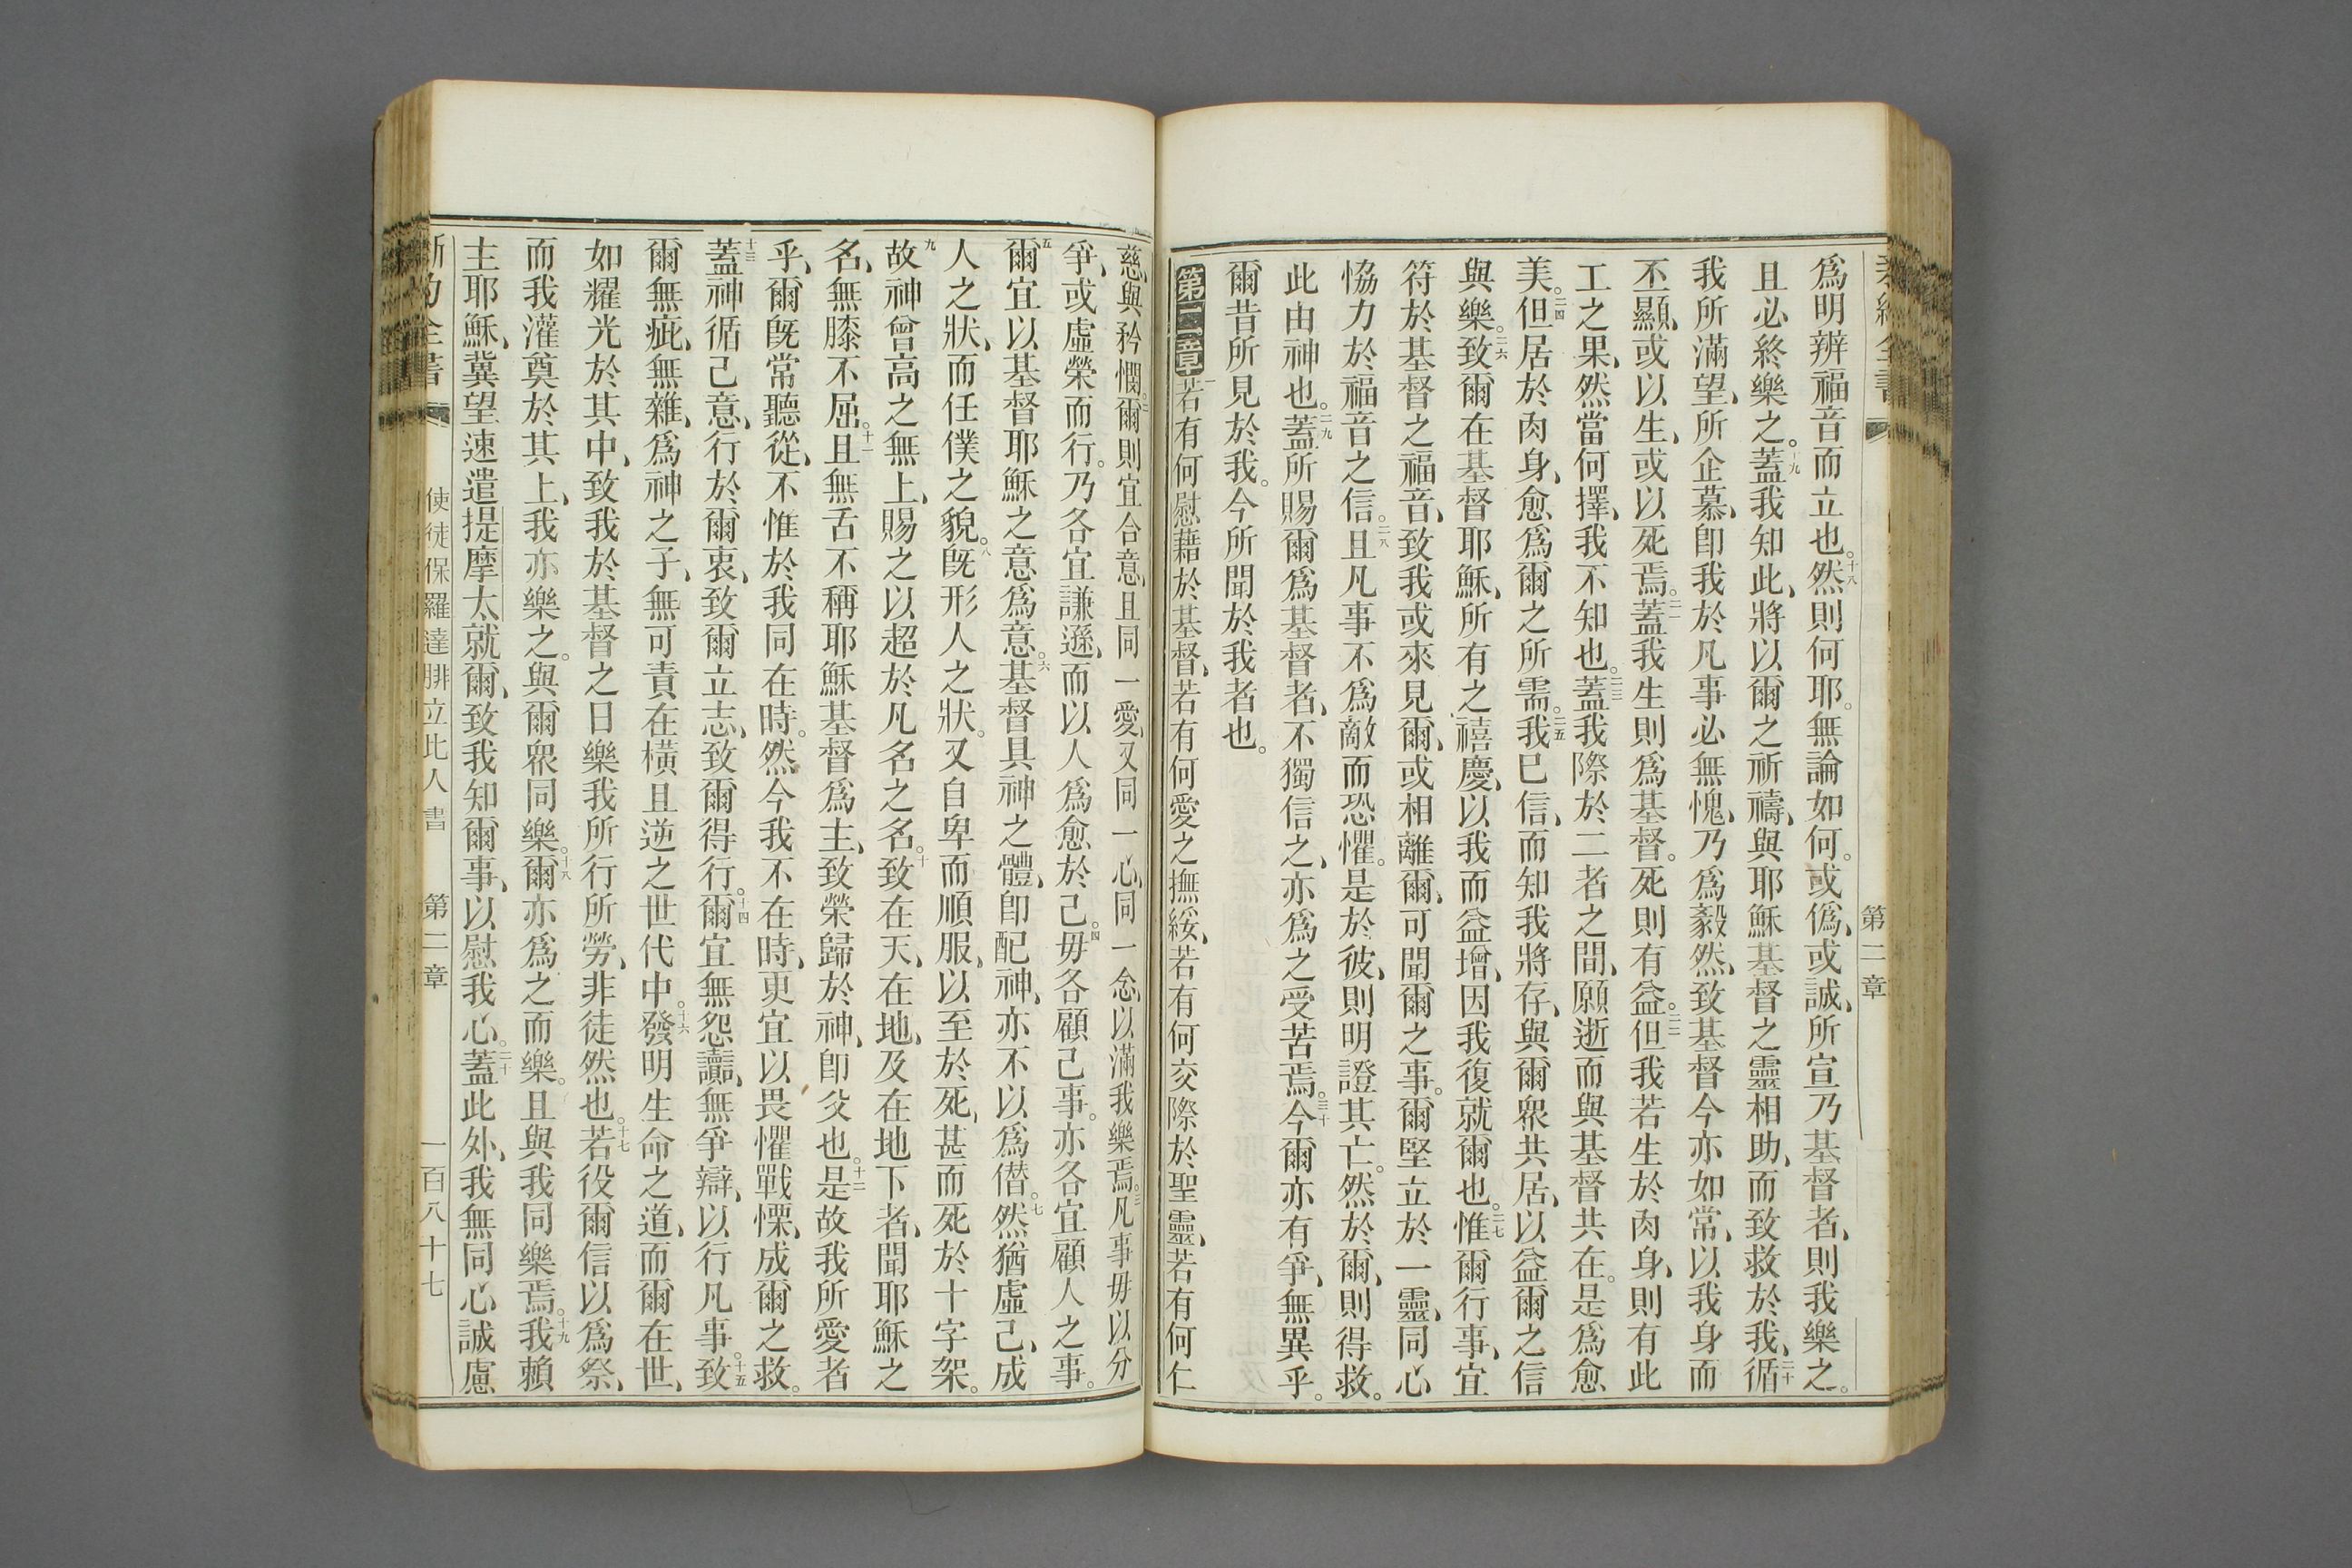 第二章
爲明辨福音而立也。十八然則何耶。無論如何。或僞、或誠、所宣乃基督者、則我樂之。
且必終樂之。十九蓋我知此、將以爾之祈禱、與耶穌基督之靈相助、而致救於我、二十循
我所滿望、所企慕、卽我於凡事必無愧、乃爲毅然、致基督今亦如常、以我身而
不顯、或以生、或以死焉。二一蓋我生則爲基督。死則有益。二二但我若生於肉身、則有此
工之果、然當何擇、我不知也。二三蓋我際於二者之間、願逝而與基督共在。是爲愈
美。二四但居於肉身、愈爲爾之所需。二五我已信、而知我將存、與爾衆共居、以益爾之信
與樂。二六致爾在基督耶穌、所有之禧慶、以我而益增、因我復就爾也。二七惟爾行事、宜
符於基督之福音、致我或來見爾、或相離爾、可聞爾之事。爾堅立於一靈、同心
恊力於福音之信。二八且凡事不爲敵而恐懼。是於彼、則明證其亡。然於爾、則得救。
此由神也。二九蓋所賜爾爲基督者、不獨信之、亦爲之受苦焉。三十今爾亦有爭、無異乎。
爾昔所見於我。今所聞於我者也。
第二章 一若有何慰藉於基督、若有何愛之撫綏、若有何交際於聖靈、若有何仁
慈、與矜憫、二爾則宜合意、且同一愛、又同一心、同一念、以滿我樂焉。三凡事毋以分
爭、或虛榮而行。乃各宜謙遜、而以人爲愈於己。四毋各顧己事。亦各宜顧人之事。
五爾宜以基督耶穌之意爲意。六基督具神之體、卽配神、亦不以爲僭。七然猶虛己、成
人之狀、而任僕之貌。八旣形人之狀。又自卑而順服、以至於死、甚而死於十字架。
九故神曾高之無上、賜之以超於凡名之名。十致在天、在地、及在地下者、聞耶穌之
名、無膝不屈。十一且無舌不稱耶穌基督爲主、致榮歸於神、卽父也。十二是故我所愛者
乎、爾旣常聽從、不惟於我同在時。然今我不在時、更宜以畏懼戰慄、成爾之救。
十三蓋神循己意、行於爾衷、致爾立志、致爾得行。十四爾宜無怨讟、無爭辯、以行凡事。十五致
爾無疵、無雜、爲神之子、無可責在橫且逆之世代中。十六發明生命之道、而爾在世、
如燿光於其中、致我於基督之日樂我所行所勞、非徒然也。十七若役爾信以爲祭、
而我灌奠於其上、我亦樂之。與爾衆同樂。十八爾亦爲之而樂。且與我同樂焉。十九我賴
主耶穌、冀望速遣提摩太就爾、致我知爾事、以慰我心。二十蓋此外、我無同心誠慮
使徒保羅達腓立比人書 第二章 一百八十七